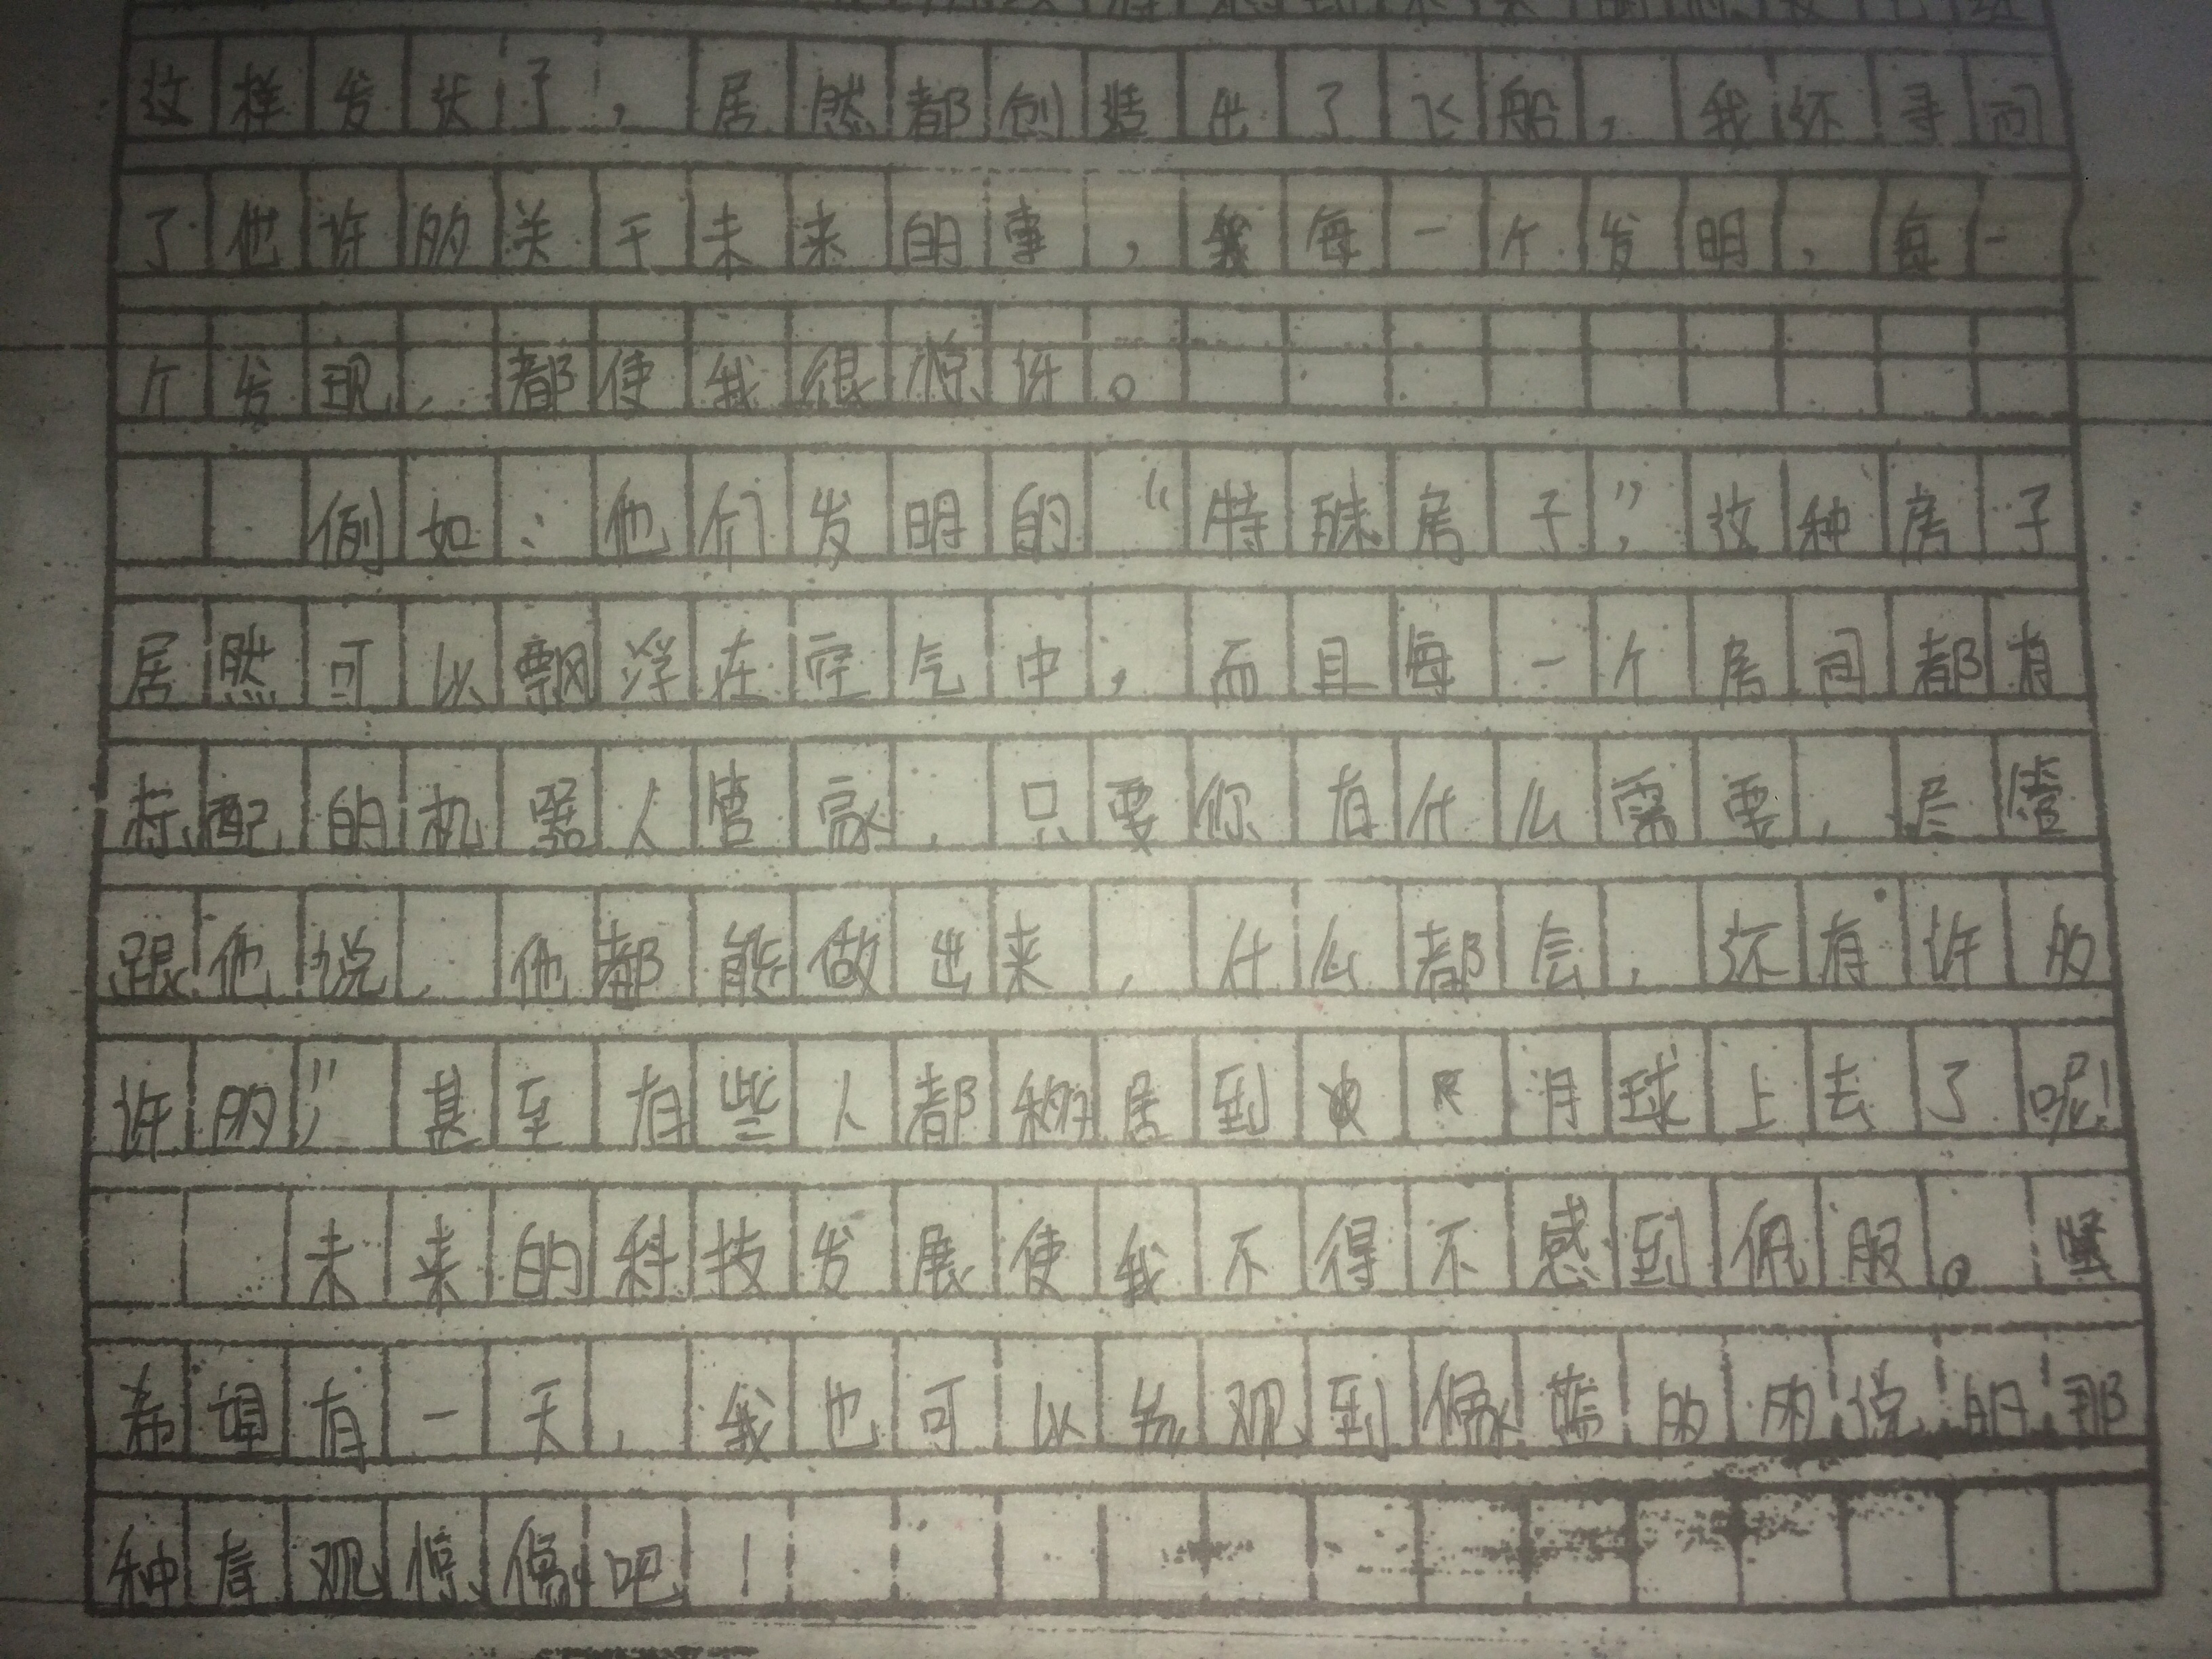 这样发达了，居然都创造出了飞船，我还寻问
了他许的关于未来的事，我每一个发明，每一
个发现，都使我很惊讶。
例如：他们发明的“特殊房子”，这种房子
居然可以飘浮在空气中，而且每一个房间都有
标配的机器人管家，只要你有什么需要，尽管
跟他说，他都能做出来，什么都会，还有许的
许的”，甚至有些人都移居到月球上去了呢！
未来的科技发展使我不得不感到佩服。
希望有一天，我也可以观到像的说的那
种观像吧！